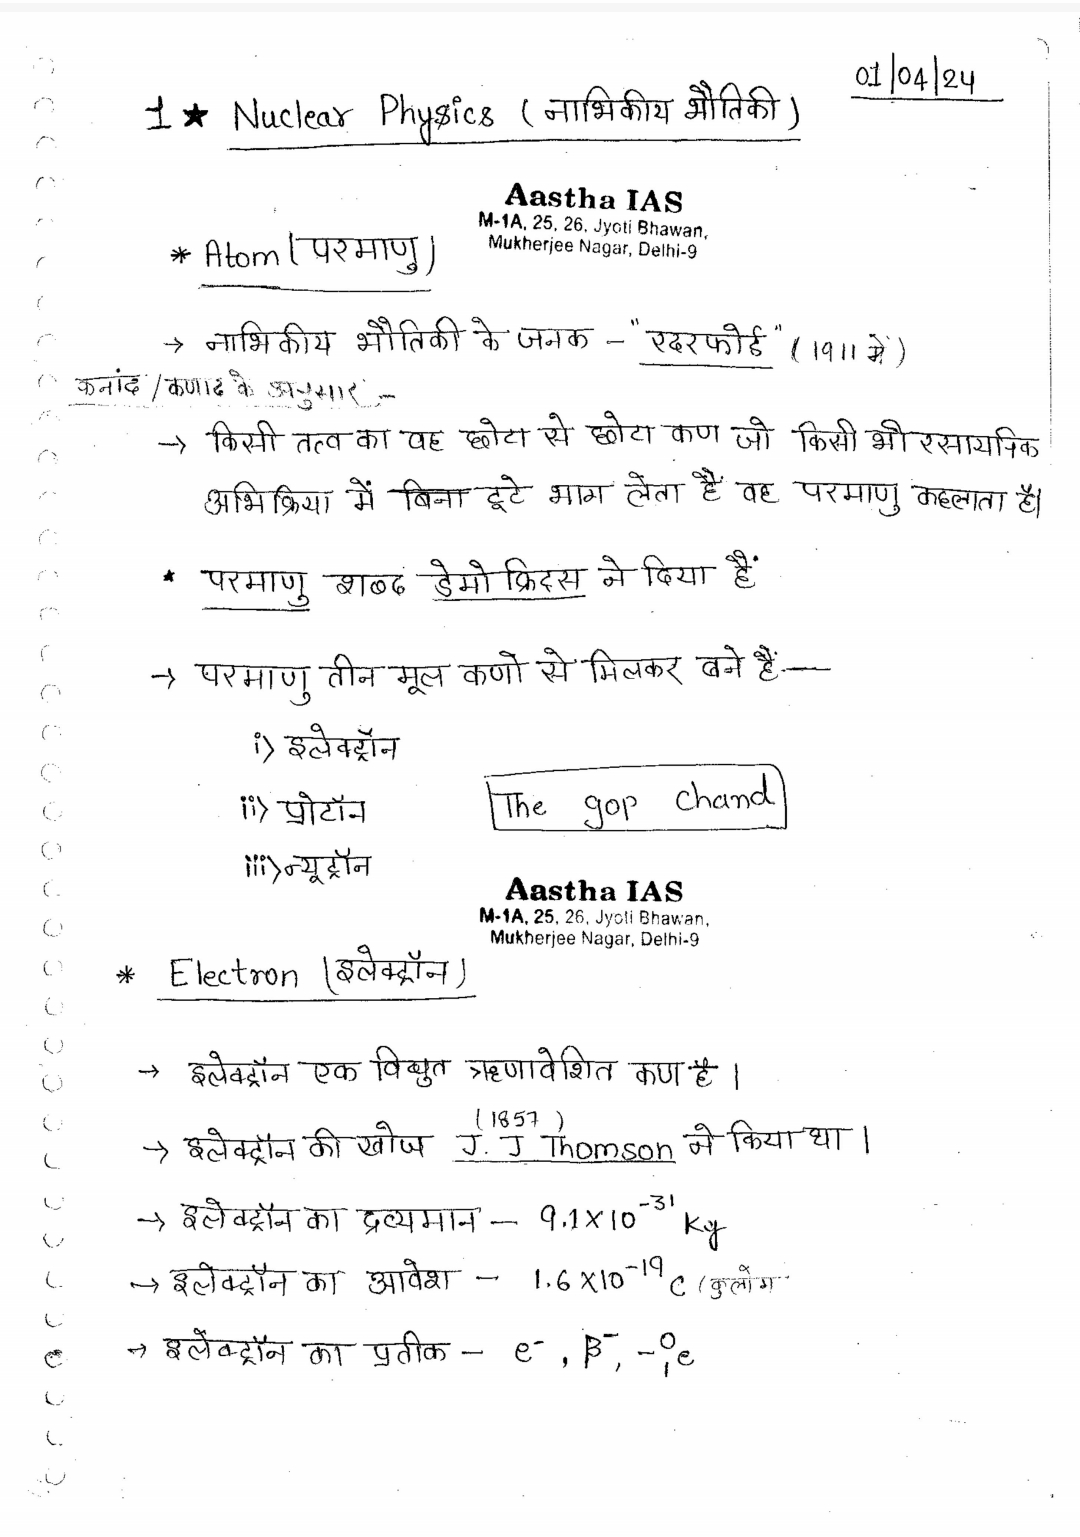 01/04/24
1 ★ Nuclear Physics (नाभिकीय भौतिकी)
Aastha IAS
M-1A, 25, 26, Jyoti Bhawan,
Mukherjee Nagar, Delhi-9
* Atom (परमाणु)
→ नाभिकीय भौतिकी के जनक – "रदरफोर्ड" (1911 में)
कनांद /कणाद के अनुसार :-
→ किसी तत्व का वह छोटा से छोटा कण जो किसी भी रसायनिक
अभिक्रिया में बिना टूटे भाग लेता है वह परमाणु कहलाता है।
* परमाणु शब्द डेमोक्रिटस ने दिया हैं
→ परमाणु तीन मूल कणो से मिलकर बने हैं:—
i> इलेक्ट्रॉन
ii> प्रोटॉन
The gop Chand
iii> न्यूट्रॉन
Aastha IAS
M-1A, 25, 26, Jyoti Bhawan,
Mukherjee Nagar, Delhi-9
* Electron (इलेक्ट्रॉन)
→ इलेक्ट्रॉन एक विद्युत ऋणावेशित कण है ।
(1857)
→ इलेक्ट्रॉन की खोज J. J Thomson ने किया था ।
→ इलेक्ट्रॉन का द्रव्यमान – 9.1×10⁻³¹ Kg
→ इलेक्ट्रॉन का आवेश – 1.6×10⁻¹⁹ C (कुलोम
→ इलेक्ट्रॉन का प्रतीक – e⁻, β⁻, ₋₁⁰e